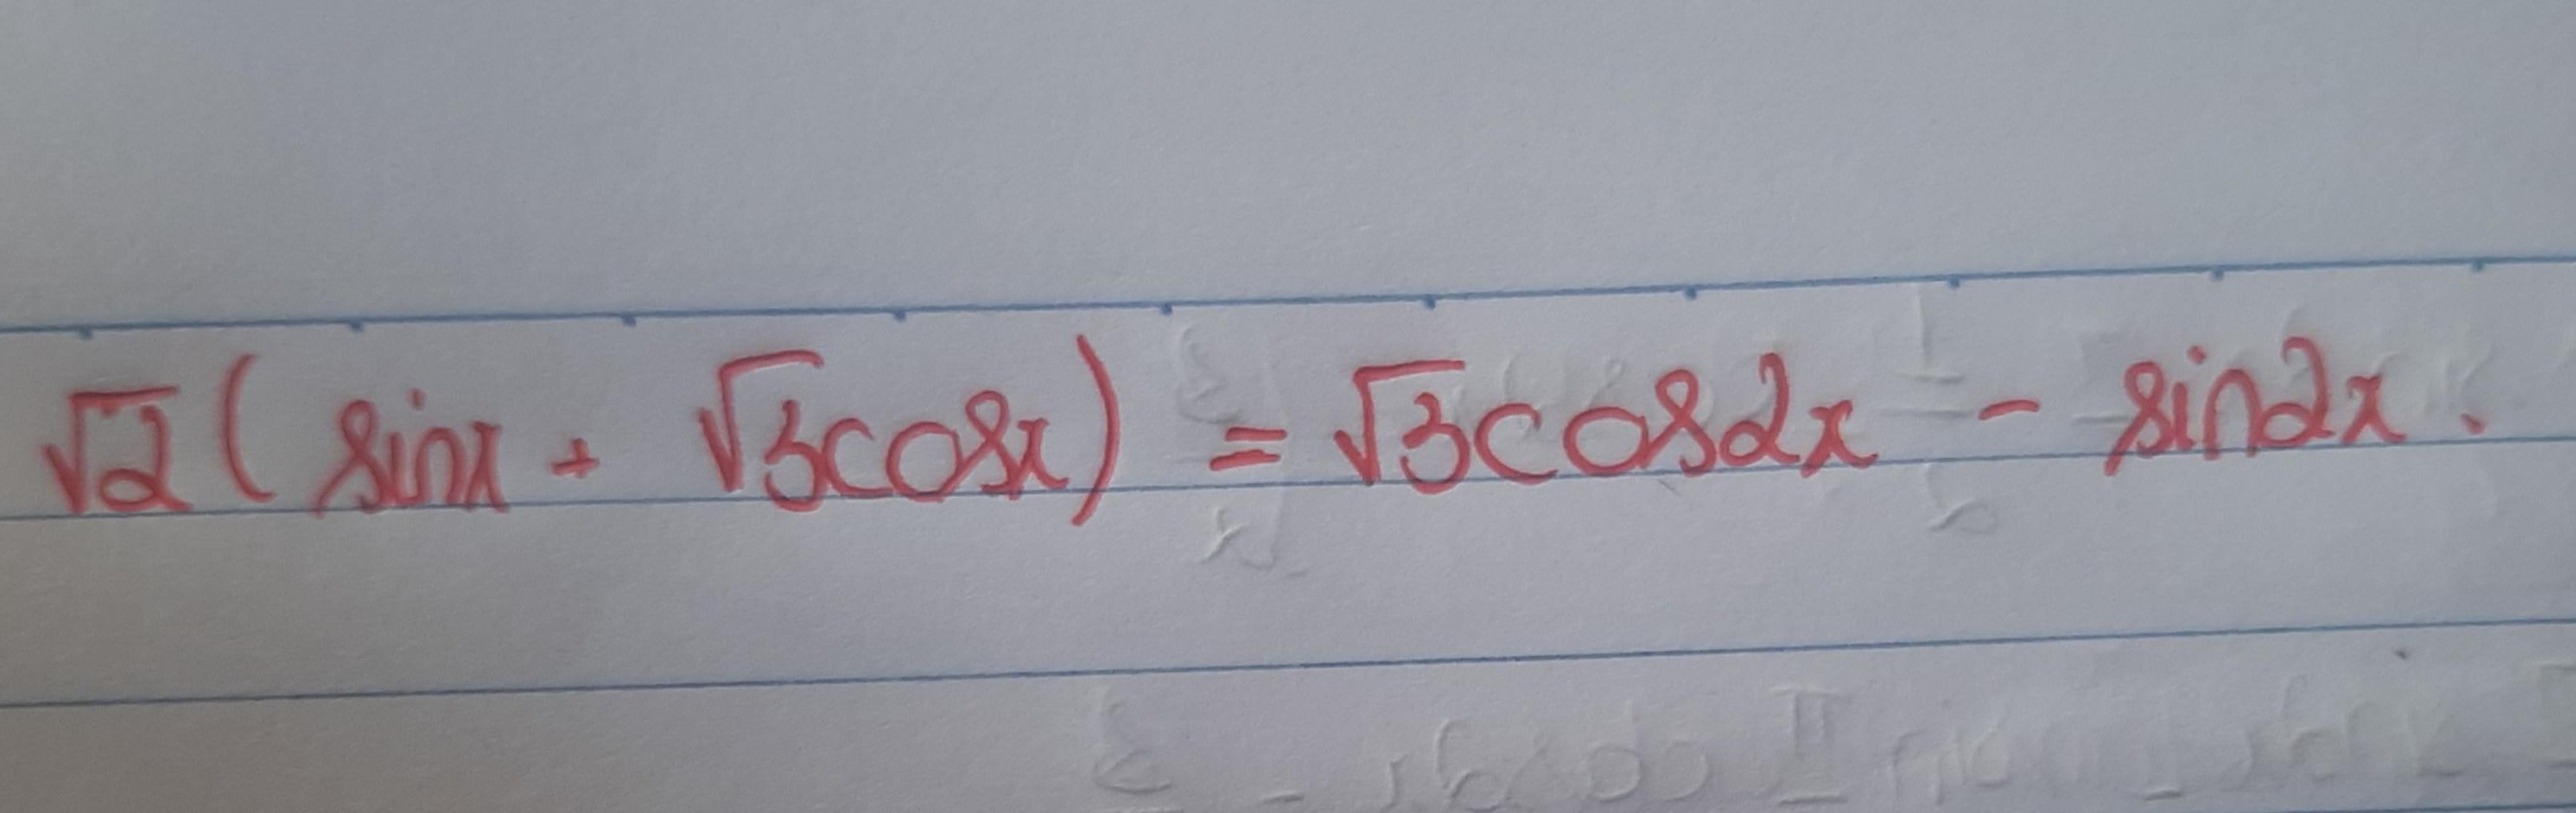 √2 ( sinx + √3cosx) = √3cos2x - sin2x.